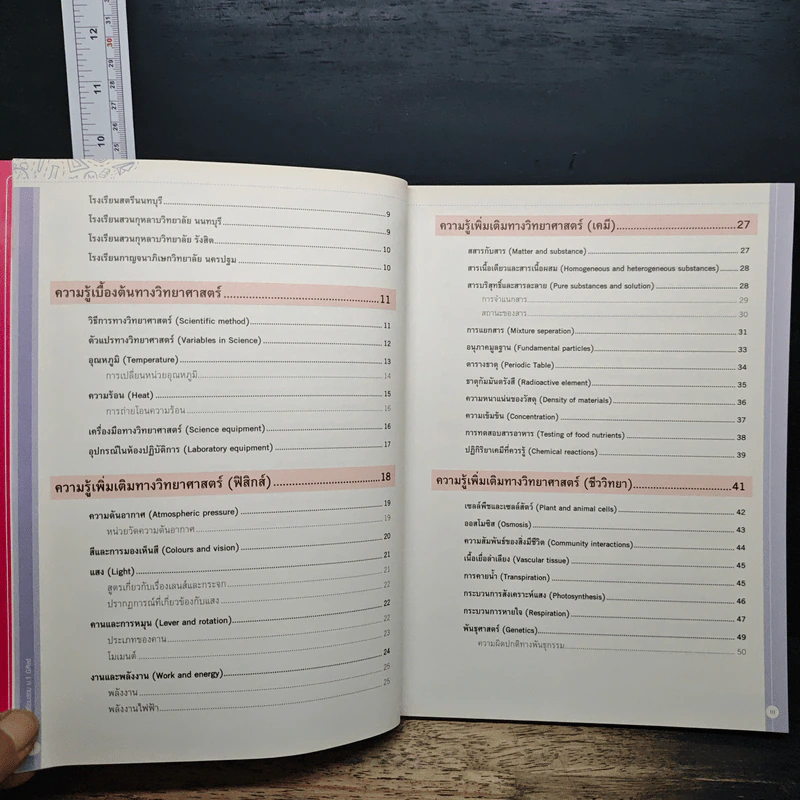 12
30
11
10
25
โรงเรียนสตรีนนทบุรี 9
โรงเรียนสวนกุหลาบวิทยาลัย นนทบุรี 9
โรงเรียนสวนกุหลาบวิทยาลัย รังสิต 10
โรงเรียนกาญจนาภิเษกวิทยาลัย นครปฐม 10
ความรู้เบื้องต้นทางวิทยาศาสตร์ 11
วิธีการทางวิทยาศาสตร์ (Scientific method) 11
ตัวแปรทางวิทยาศาสตร์ (Variables in Science) 12
อุณหภูมิ (Temperature) 13
การเปลี่ยนหน่วยอุณหภูมิ 14
ความร้อน (Heat) 15
การถ่ายโอนความร้อน 16
เครื่องมือทางวิทยาศาสตร์ (Science equipment) 16
อุปกรณ์ในห้องปฏิบัติการ (Laboratory equipment) 17
ความรู้เพิ่มเติมทางวิทยาศาสตร์ (ฟิสิกส์) 18
ความดันอากาศ (Atmospheric pressure) 19
หน่วยวัดความดันอากาศ 19
สีและการมองเห็นสี (Colours and vision) 20
แสง (Light) 21
สูตรเกี่ยวกับเรื่องเลนส์และกระจก 21
ปรากฏการณ์ที่เกี่ยวข้องกับแสง 22
คานและการหมุน (Lever and rotation) 22
ประเภทของคาน 22
โมเมนต์ 23
งานและพลังงาน (Work and energy) 24
พลังงาน 25
พลังงานไฟฟ้า 25
ความรู้เพิ่มเติมทางวิทยาศาสตร์ (เคมี) 27
สสารกับสาร (Matter and substance) 27
สารเนื้อเดียวและสารเนื้อผสม (Homogeneous and heterogeneous substances) 28
สารบริสุทธิ์และสารละลาย (Pure substances and solution) 28
การจำแนกสาร 29
สถานะของสาร 30
การแยกสาร (Mixture seperation) 31
อนุภาคมูลฐาน (Fundamental particles) 33
ตารางธาตุ (Periodic Table) 34
ธาตุกัมมันตรังสี (Radioactive element) 35
ความหนาแน่นของวัสดุ (Density of materials) 36
ความเข้มข้น (Concentration) 37
การทดสอบสารอาหาร (Testing of food nutrients) 38
ปฏิกิริยาเคมีที่ควรรู้ (Chemical reactions) 39
ความรู้เพิ่มเติมทางวิทยาศาสตร์ (ชีววิทยา) 41
เซลล์พืชและเซลล์สัตว์ (Plant and animal cells) 42
ออสโมซิส (Osmosis) 43
ความสัมพันธ์ของสิ่งมีชีวิต (Community interactions) 44
เนื้อเยื่อลำเลียง (Vascular tissue) 45
การคายน้ำ (Transpiration) 45
กระบวนการสังเคราะห์แสง (Photosynthesis) 46
กระบวนการหายใจ (Respiration) 47
พันธุศาสตร์ (Genetics) 49
ความผิดปกติทางพันธุกรรม 50